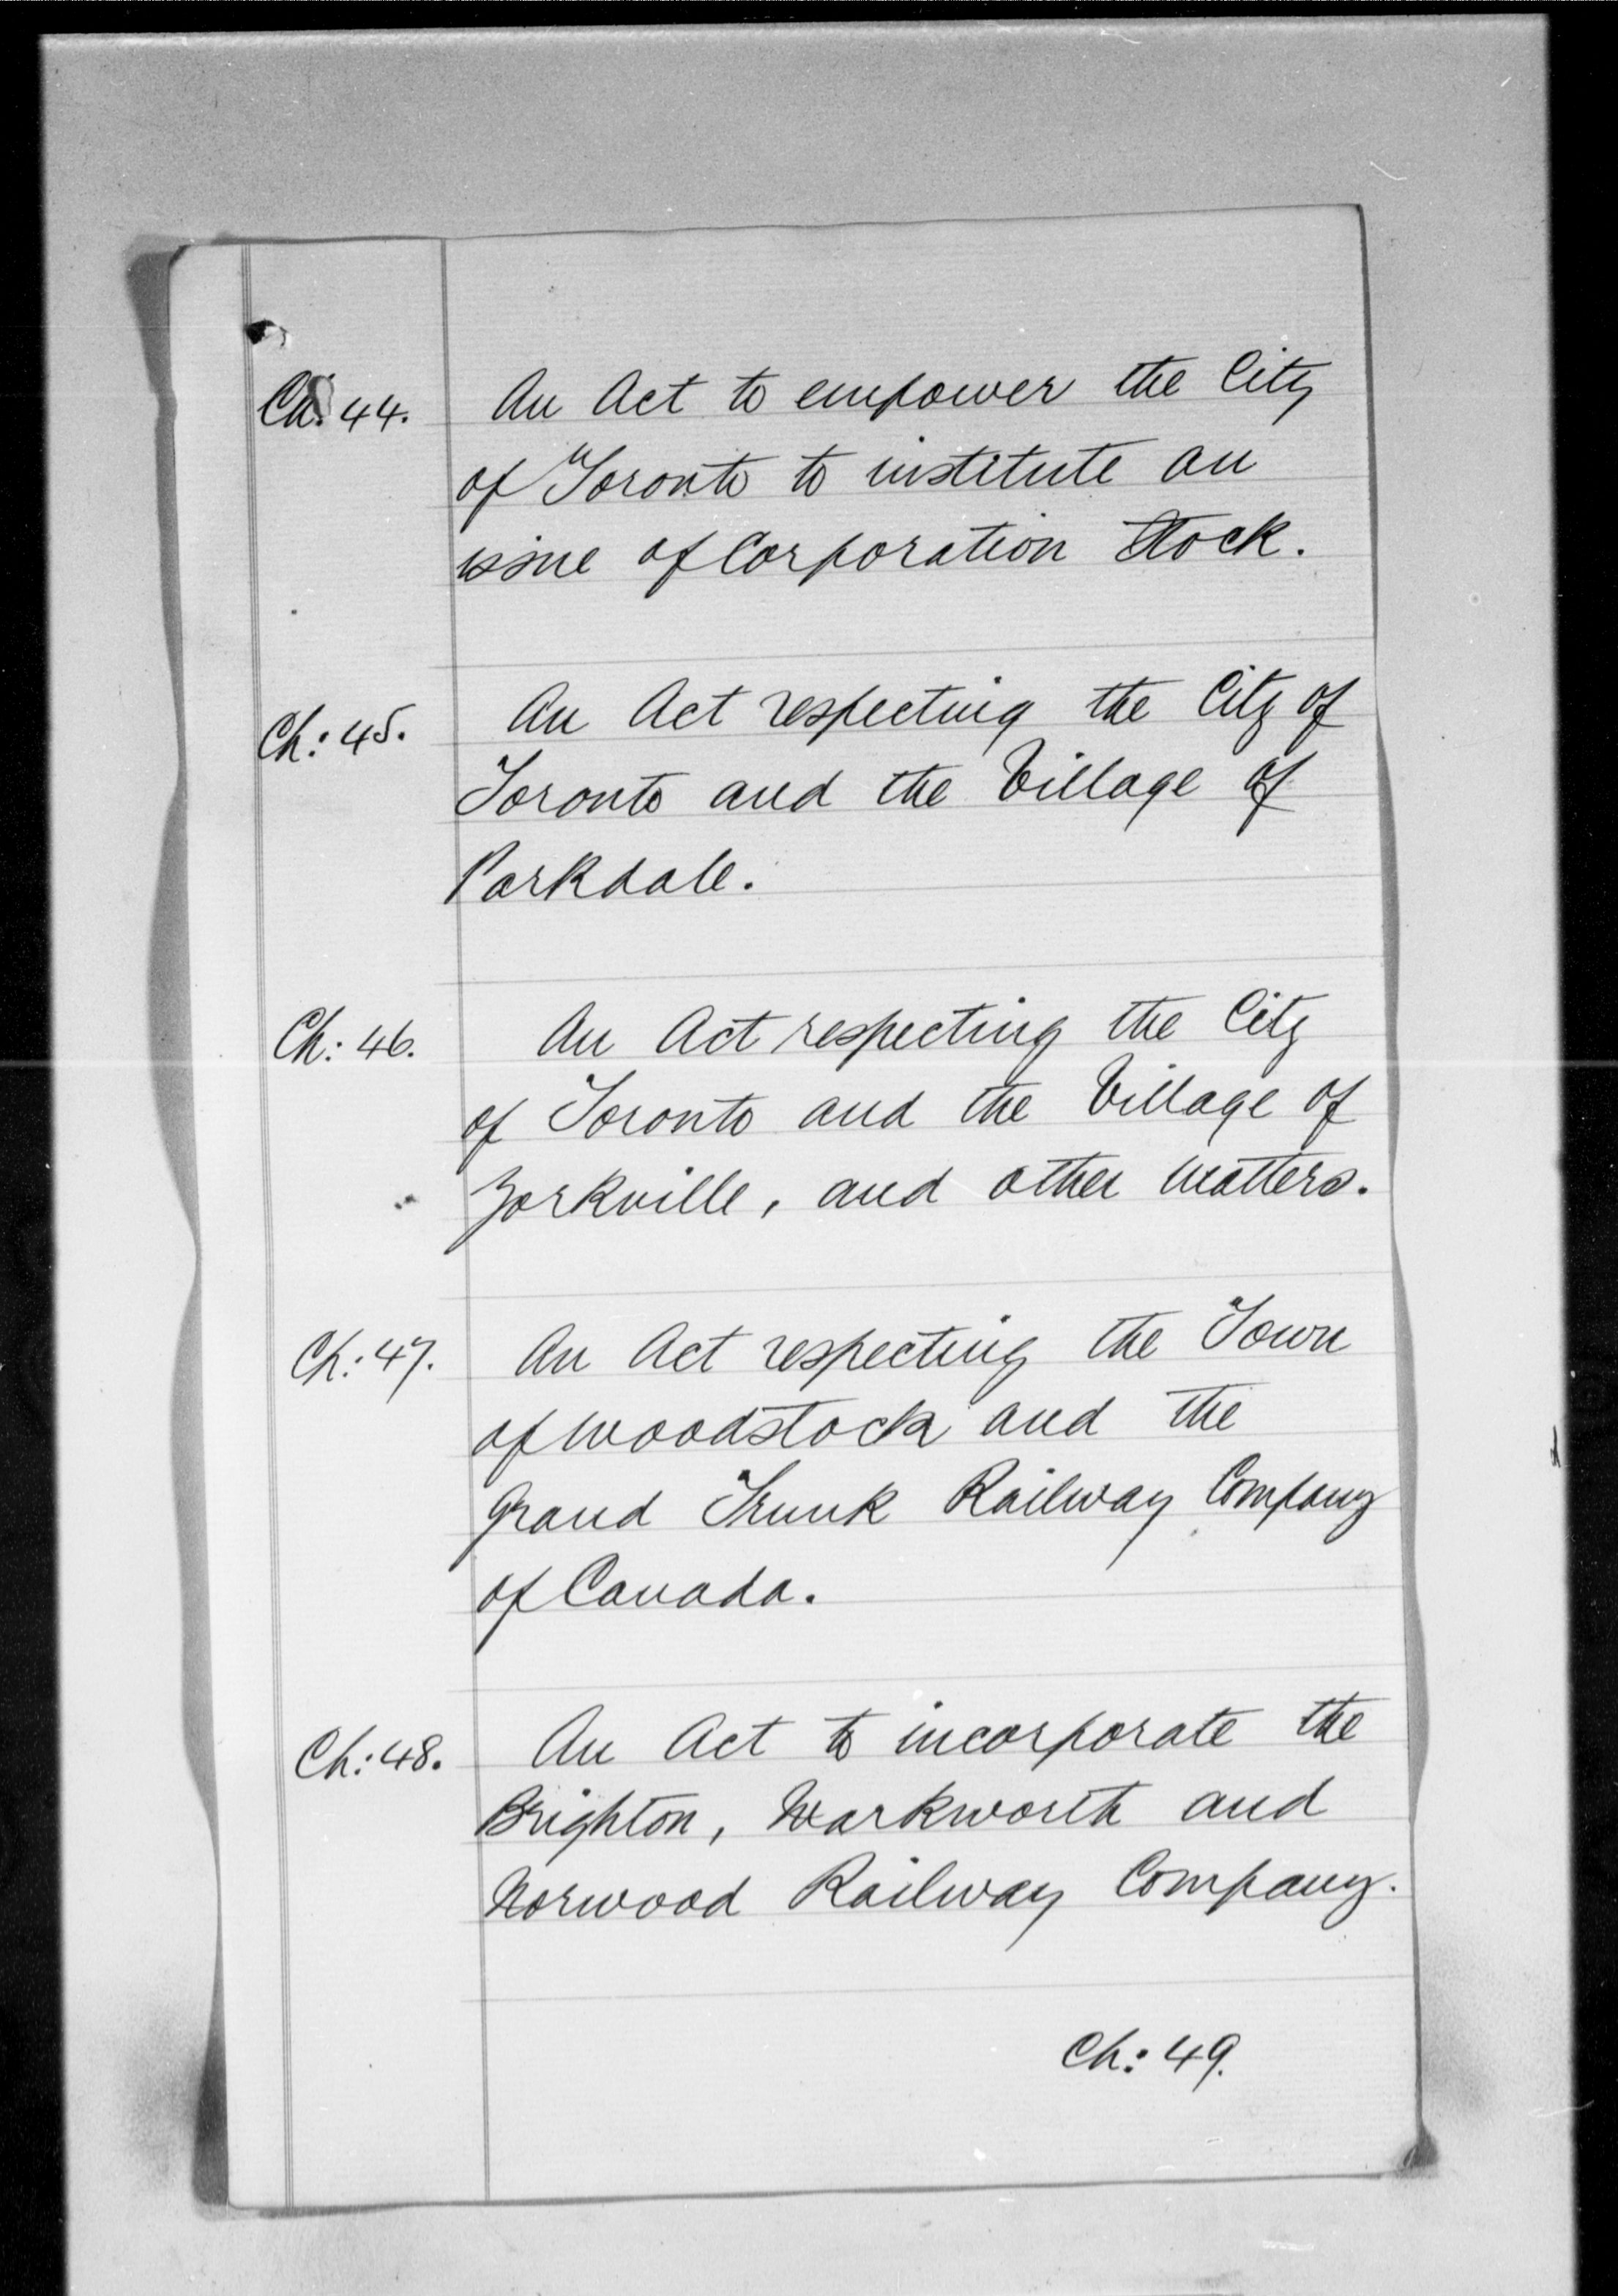 Ch: 44. An Act to empower the City
of Toronto to institute an
issue of Corporation Stock.
Ch: 45. An Act respecting the City of
Toronto and the Village of
Parkdale.
Ch: 46. An Act respecting the City
of Toronto and the Village of
Yorkville, and other matters.
Ch: 47. An Act respecting the Town
of Woodstock and the
Grand Trunk Railway Company
of Canada.
Ch: 48. An Act to incorporate the
Brighton, Warkworth and
Norwood Railway Company.
Ch: 49.